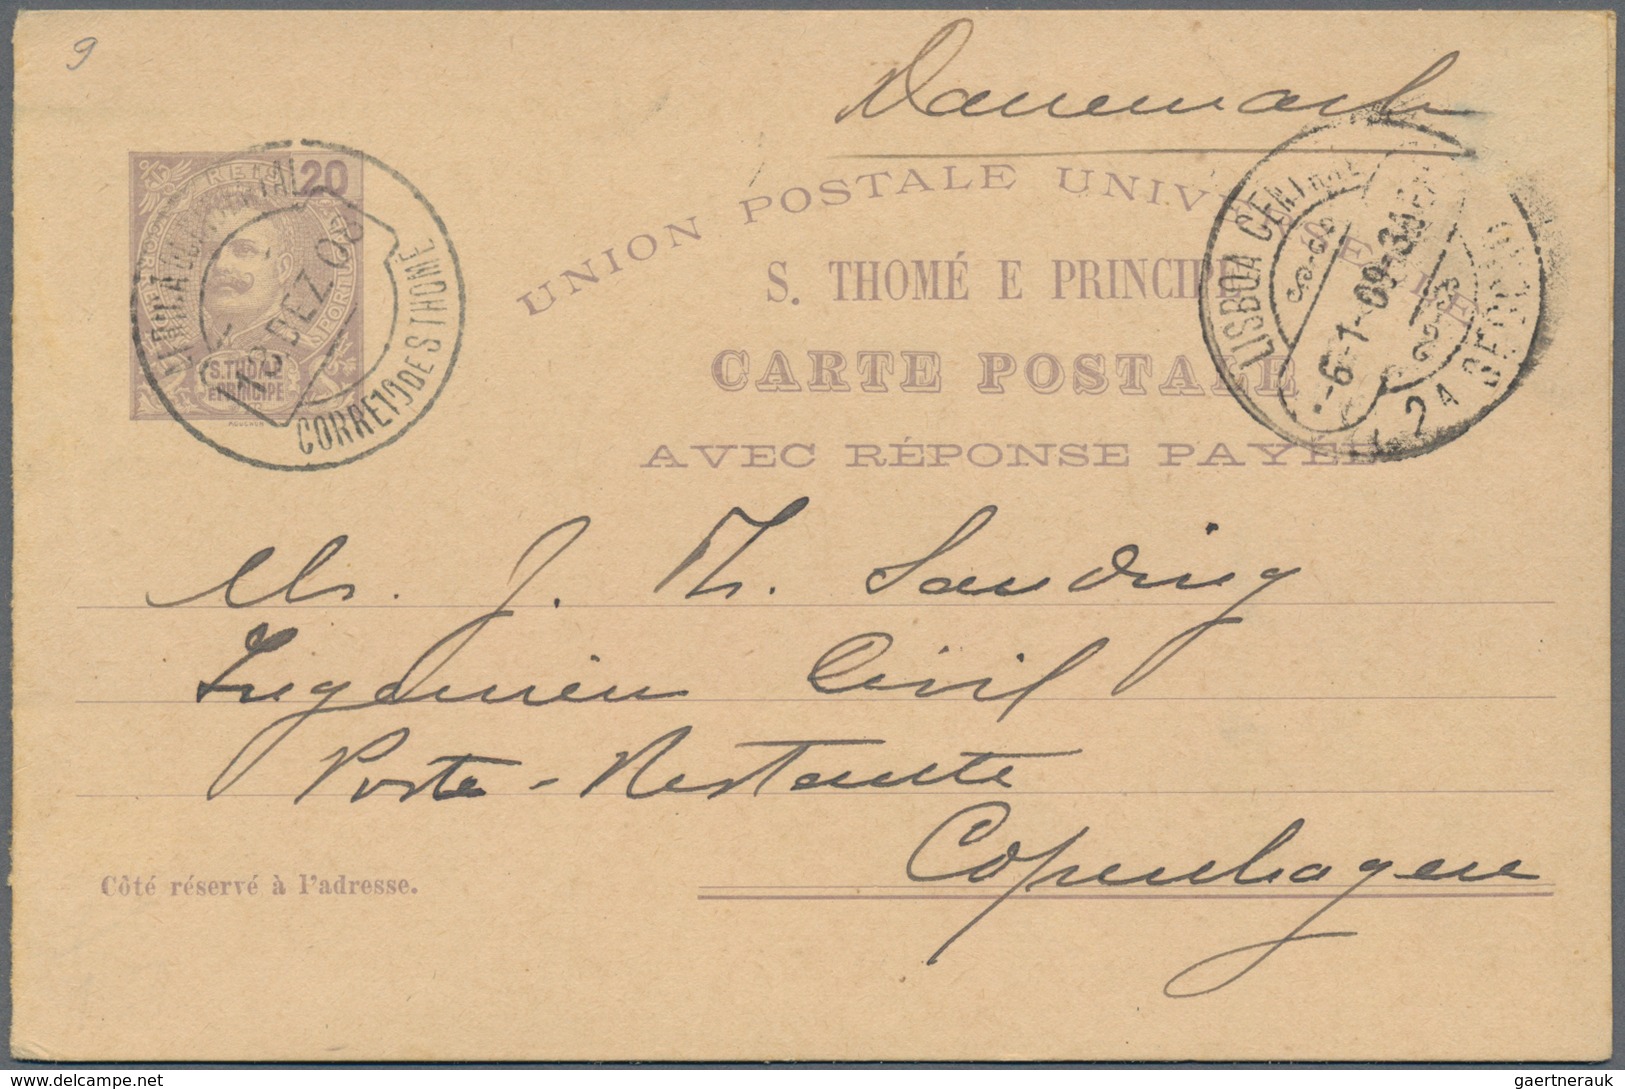 9
Danemark
REIS 20
CORREIOS PORTUGAL
S. THOMÉ
E PRINCIPE
MOUCHON
18 DEZ. 08
CORREIO DE S THOMÉ
UNION POSTALE UNIVERSELLE
S. THOMÉ E PRINCIPE
CARTE POSTALE
AVEC RÉPONSE PAYÉE
LISBOA CENTRAL
-6-1-09-3
2A SECÇÃO
Mr. J. Th. Sanding
Ingenieur Civil
Poste-Restante
Copenhagen
Côté réservé à l'adresse.
www.delcampe.net
gaertnerauk